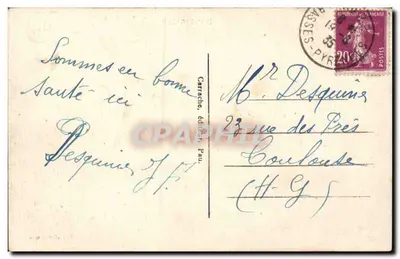 Sommes en bonne
santé ici
Desquine J F.
Carrache, éditeur, Pau.
Mr Desquine
23 rue des Prés
Toulouse
(H-G)
BASSES-PYR
35
20c
POSTES
CARTES-POSTALES